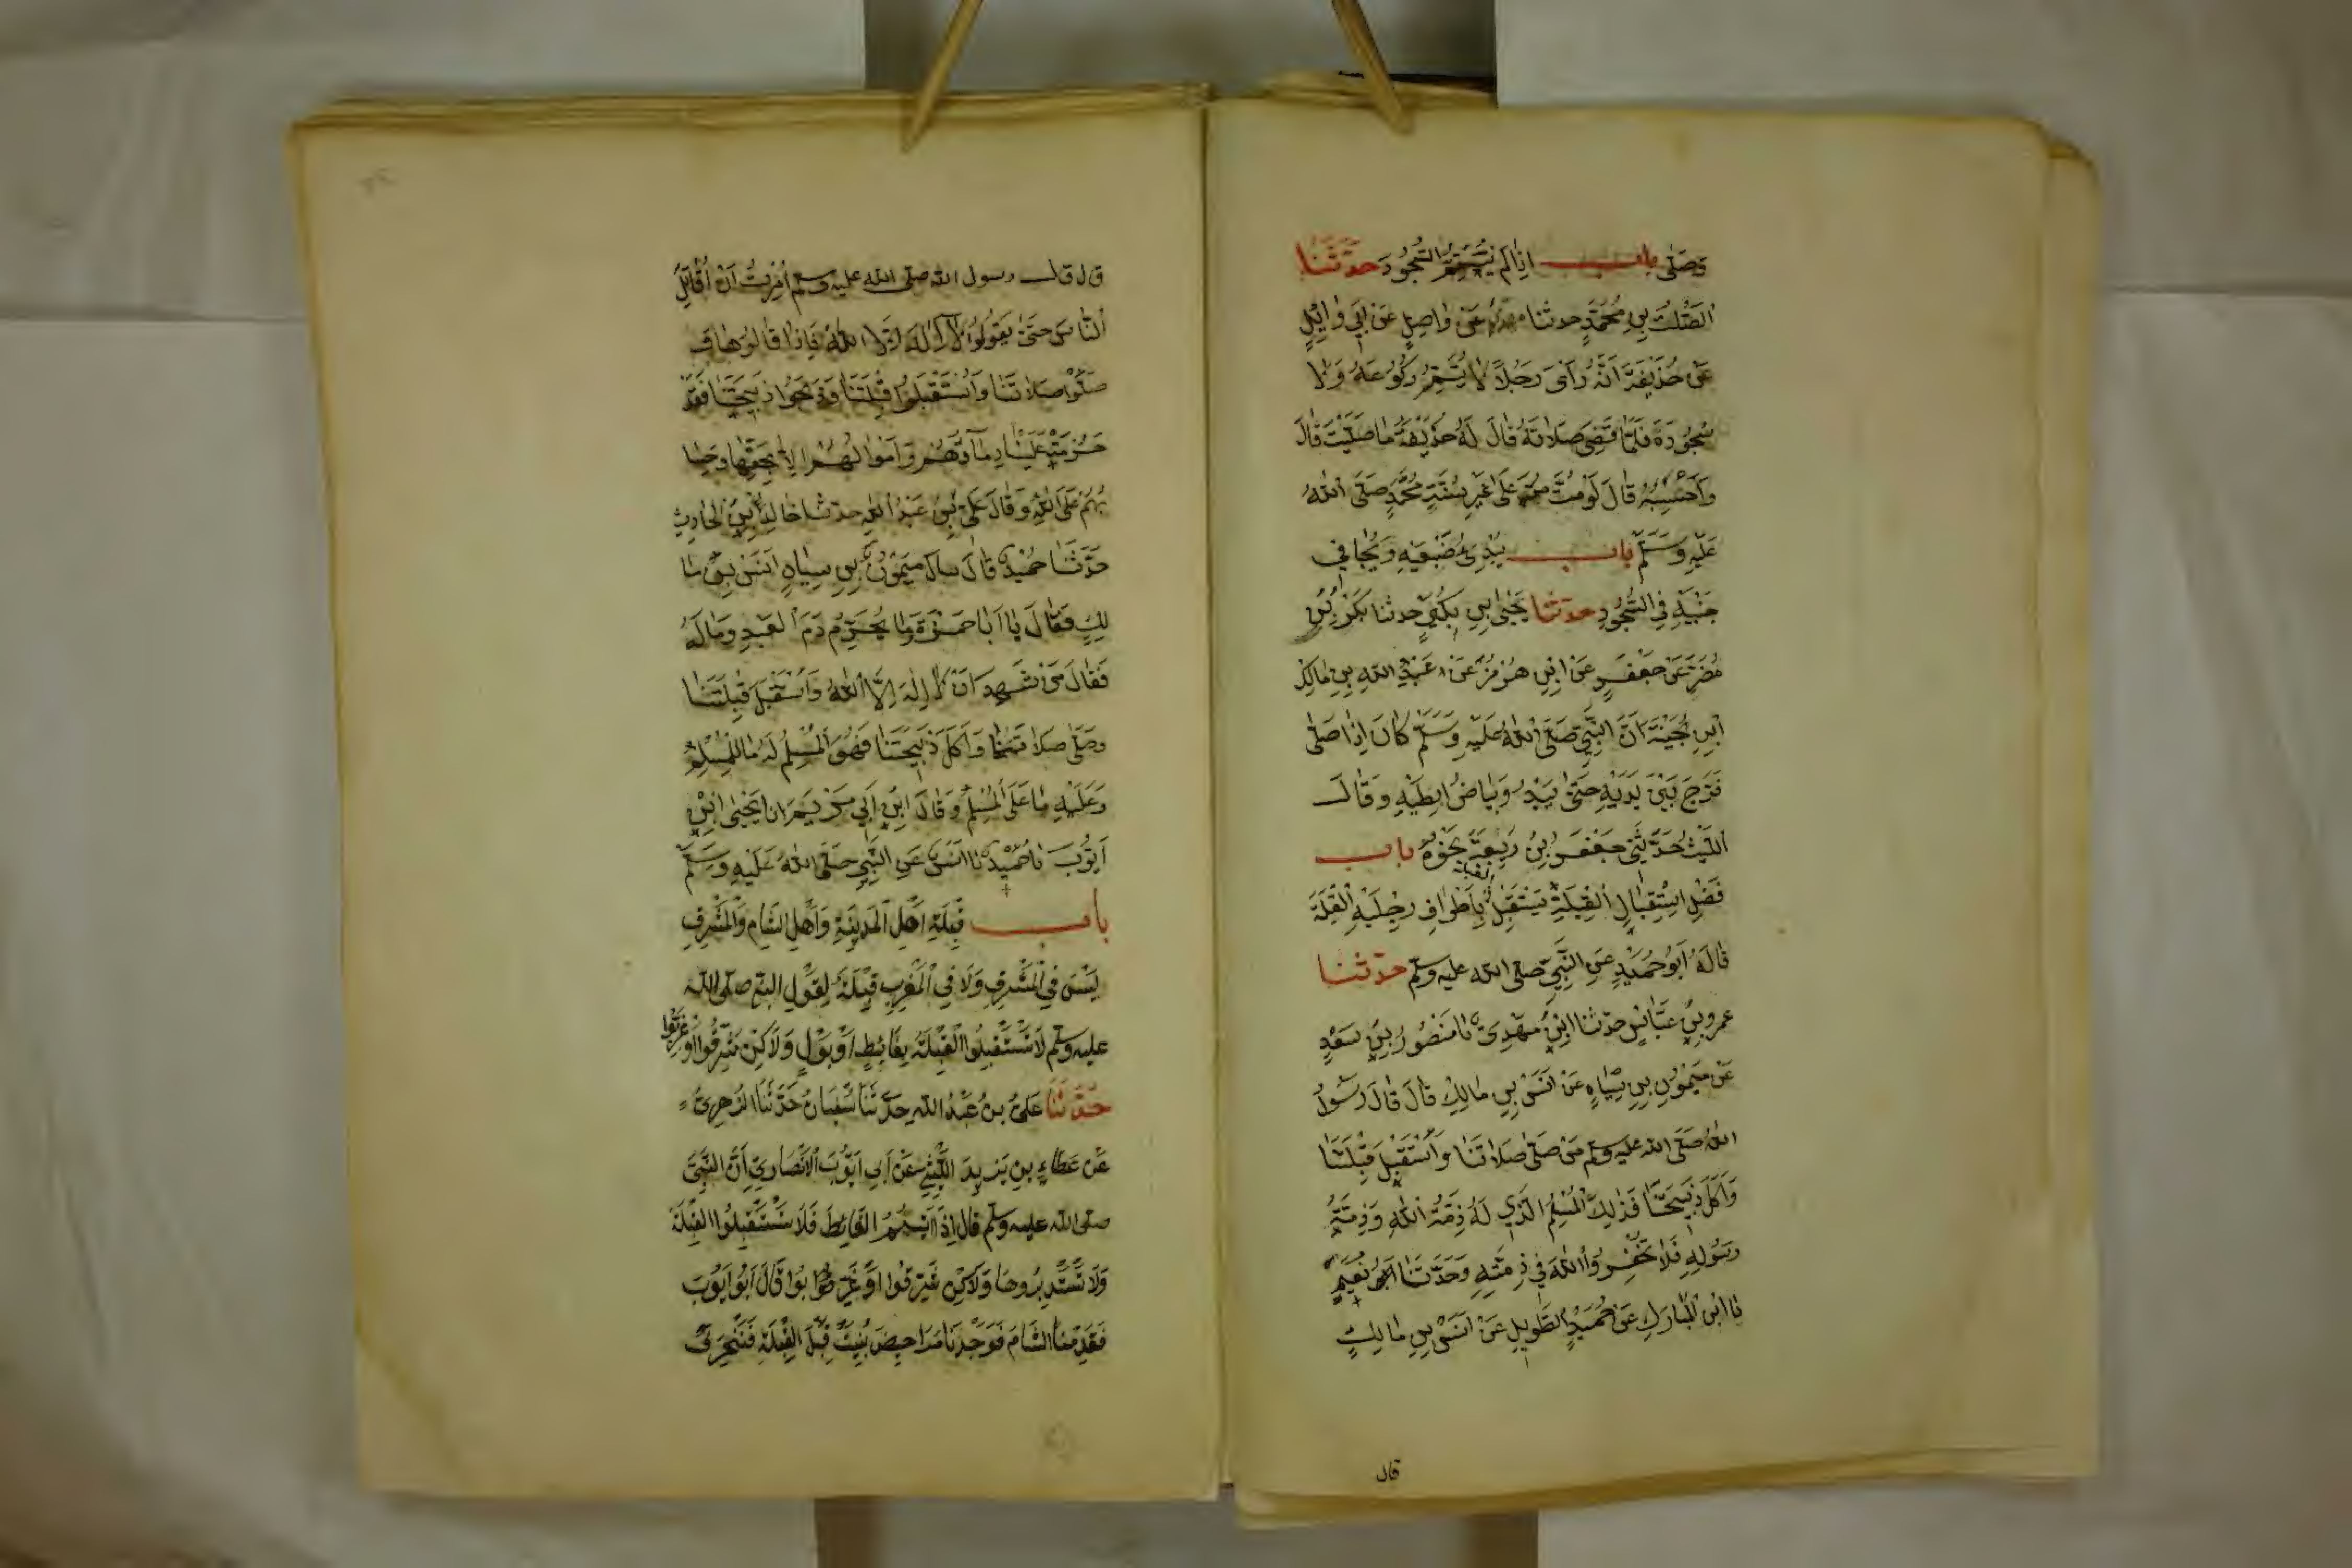 وَصَلّٰى باب اذا لم يُتِمَّ السُّجُودَ حدّثنا
الصَّلْتُ بنِ مُحَمَّدٍ حدثنا مهدى عَنْ وٰاصِلٍ عَنْ اَبِي وٰايِلٍ
عَنْ حُذَيْفَةَ اَنَّهُ رَأىٰ رَجُلًا لا يُتِمُّ رُكُوعَهُ وَلا
سُجُودَهُ فَلَمّا قَضىٰ صَلَاتَهُ قٰالَ لَهُ حُذَيْفَةُ مٰا صَلَّيْتَ قٰالَ
وَاَحْسِبُهُ قٰالَ لَوْ مُتَّ مُتَّ عَلىٰ غَيْرِ سُنَّةِ مُحَمَّدٍ صَلَّى اللهُ
عَلَيْهِ وَسَلَّمَ باب يُبْدِئ ضَبْعَيْهِ وَيُجٰافِي
جَنْبَيْهِ فِي السُّجُودِ حدّثنا يَحْيَىٰ بنِ بُكَيْرٍ حدثنا بَكْرُ بْنُ
مُضَرَ عَنْ جَعْفَرٍ عَنْ ابْنِ هُرْمُزَ عَنْ عَبْدِ اللهِ بنِ مٰالِكِ
ابْنِ بُحَيْنَةَ اَنَّ النَّبِيَّ صَلَّى اللهُ عَلَيْهِ وَسَلَّمَ كَانَ اِذٰا صَلّٰى
فَرَّجَ بَيْنَ يَدَيْهِ حَتّٰى يَبْدُوَ بَيٰاضُ اِبِطَيْهِ وَقٰالَ
اللَّيْثُ حَدَّثَنِي جَعْفَرُ بْنُ رَبِيعَةَ نَحْوَهُ باب
فَضْلِ اسْتِقْبٰالِ الْقِبْلَةِ يَسْتَقْبِلُ بِاَطْرٰافِ رِجْلَيْهِ الْقِبْلَةَ
قٰالَهُ اَبُو حُمَيْدٍ عَنِ النَّبِيِّ صلى الله عليه وسلم حدّثنا
عمرو بنُ عَبّٰاسٍ حدّثنا ابْنُ مَهْدِىّ نا مَنْصُورُ بنُ سَعْدٍ
عَنْ مَيْمُونِ بنِ سِيٰاهٍ عَنْ اَنَسِ بنِ مٰالِكٍ قٰالَ قٰالَ رَسُولُ
اللهِ صَلَّى الله عليه وسلم مَنْ صَلّٰى صَلَاتَنٰا وَاسْتَقْبَلَ قِبْلَتَنٰا
وَاَكَلَ ذَبِيحَتَنٰا فَذٰلِكَ الْمُسْلِمُ الَّذِي لَهُ ذِمَّةُ اللهِ وَذِمَّةُ
رَسُولِهِ فَلَا تُخْفِرُوا اللهَ فِي ذِمَّتِهِ وَحَدَّثَنٰا اَبُو نُعَيْمٍ
نا ابن الْمُبَارَكِ عَنْ حُمَيْدٍ الطَّوِيلِ عَنْ اَنَسِ بنِ مٰالِكٍ
قال
قال قال رسول الله صلى الله عليه وسلم اُمِرْتُ اَنْ اُقَاتِلَ
النّٰاسَ حَتّٰى يَقُولُوا لَا اِلٰهَ اِلَّا اللهُ فَاِذٰا قٰالُوهٰا وَ
صَلَّوْا صَلَاتَنٰا وَاسْتَقْبَلُوا قِبْلَتَنٰا وَذَبَحُوا ذَبِيحَتَنٰا فَقَدْ
حَرُمَتْ عَلَيْنٰا دِمٰاؤُهُمْ وَاَمْوٰالُهُمْ اِلَّا بِحَقِّهٰا وَحِسٰا
بُهُمْ عَلَى اللهِ وَقٰالَ عَلِيُّ بْنُ عَبْدِ اللهِ حدّثنا خٰالِدُ بْنُ الْحٰارِثِ
حَدَّثَنٰا حُمَيْدٌ قٰالَ سأل مَيْمُونُ بنِ سِيٰاهٍ اَنَسَ بنَ مٰا
لِكٍ فَقٰالَ يٰا اَبٰا حَمْزَةَ وَمٰا يُحَرِّمُ دَمَ الْعَبْدِ وَمٰالَهُ
فَقٰالَ مَنْ شَهِدَ اَنْ لَا اِلٰهَ اِلَّا اللهُ وَاسْتَقْبَلَ قِبْلَتَنٰا
وَصَلّٰى صَلَاتَنٰا وَاَكَلَ ذَبِيحَتَنٰا فَهُوَ الْمُسْلِمُ لَهُ مٰا لِلْمُسْلِمِ
وَعَلَيْهِ مٰا عَلَى الْمُسْلِمِ وَقٰالَ ابْنُ اَبِي مَرْيَمَ انا يَحْيَى ابْنُ
اَيُّوبَ نا حُمَيْدٌ نا اَنَسٌ عَنِ النَّبِيِّ صَلَّى اللهُ عَلَيْهِ وَسَلَّمَ
باب قِبْلَةِ اَهْلِ الْمَدِينَةِ وَاَهْلِ الشَّامِ وَالْمَشْرِقِ
لَيْسَ فِي الْمَشْرِقِ وَلَا فِي الْمَغْرِبِ قِبْلَةٌ لِقَوْلِ النبي صلى الله
عليه وسلم لَا تَسْتَقْبِلُوا الْقِبْلَةَ بِغَائِطٍ اَوْ بَوْلٍ وَلَاكِنْ شَرِّقُوا اَوْ غَرِّبُوا
حَدَّثَنَا عَلِيُّ بنُ عَبْدُ الله حَدَّثَنَا سُفْيَانُ حَدَّثَنَا الزُّهْرِيُّ
عَنْ عَطَاءِ بنِ يَزِيدَ اللَّيْثِيِّ عَنْ اَبِي اَيُّوبَ الْاَنْصَارِيِّ اَنَّ النَّبِيَّ
صلى الله عليه وسلم قال اِذَا اَتَيْتُمُ الْغَائِطَ فَلَا تَسْتَقْبِلُوا الْقِبْلَةَ
وَلَا تَسْتَدْبِرُوهَا وَلَاكِنْ شَرِّقُوا اَوْ غَرِّبُوا قَالَ اَبُو اَيُّوبَ
فَقَدِمْنَا الشَّامَ فَوَجَدْنَا مَرَاحِيضَ بُنِيَتْ قِبَلَ الْقِبْلَةِ فَنَنْحَرِفُ